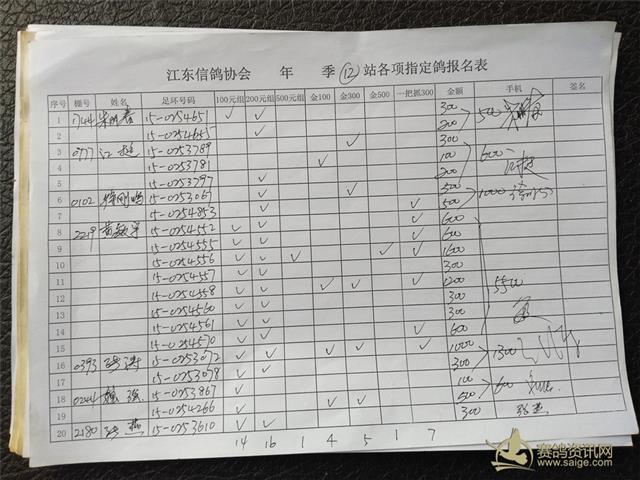 江东信鸽协会 年 季 ⑫ 站各项指定鸽报名表
序号 棚号 姓名 足环号码 100元组 200元组 500元组 金100 金300 金500 一把抓300 金额 手机 签名
1 0744 15-0254651 ✓ ✓ 300
2 15-0254655 ✓ 200 500
3 0777 江挺 15-0253789 ✓ 300
4 15-0253781 ✓ 100 600
5 15-0253797 ✓ 200
6 0102 15-0253067 ✓ ✓ 500
7 15-0254853 ✓ ✓ 500 1000
8 2219 15-0254552 ✓ ✓ ✓ 600
9 15-0254555 ✓ ✓ ✓ 600
10 15-0254556 ✓ ✓ ✓ ✓ ✓ 1600
11 15-0254557 ✓ ✓ 300
12 15-0254558 ✓ ✓ ✓ ✓ ✓ 1200 5500
13 15-0254560 ✓ ✓ 300
14 15-0254561 ✓ ✓ 300
15 15-0254570 ✓ ✓ ✓ 600
16 0393 15-0253072 ✓ ✓ ✓ ✓ ✓ 1000
17 15-0253078 ✓ ✓ 300 1300
18 0244 15-0253867 ✓ 100
19 15-0254266 ✓ ✓ ✓ 500 600
20 2180 15-0253610 ✓ ✓ 300
14 16 1 4 5 1 7
赛鸽资讯网
www.saige.com